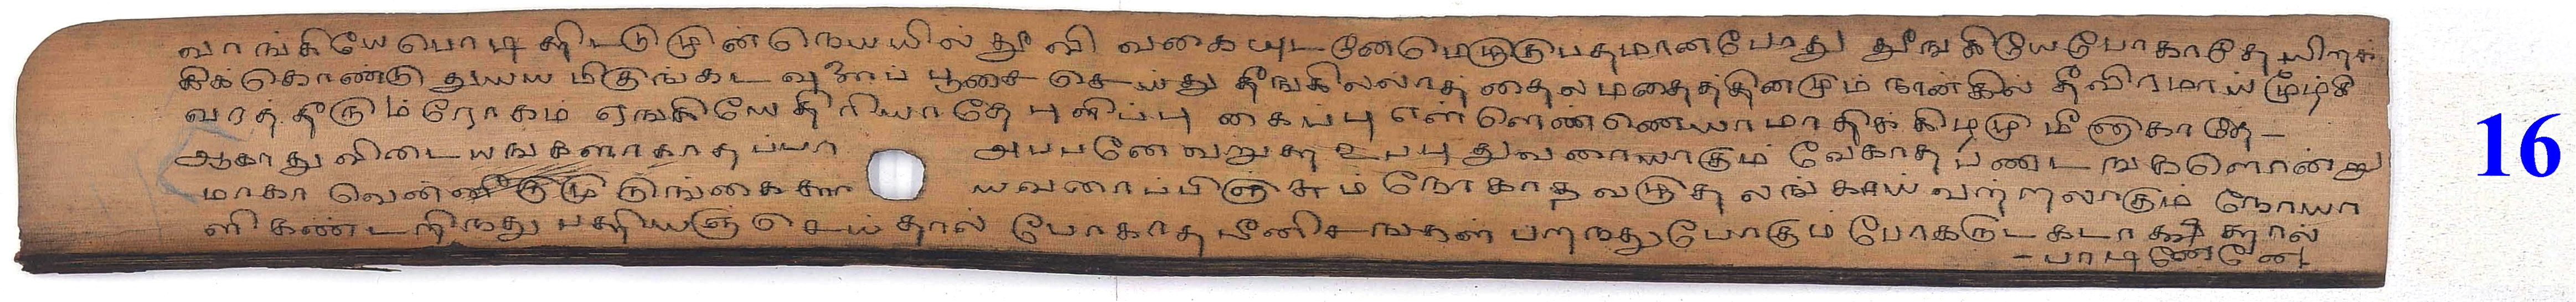 வாங்கியே பொடியிட்டு முன் நெய்யில் தூவி வகையுடனே மெழுகு பதமான போது தூங்கியே போகாதே யிறக்
கிக் கொண்டு துய்ய மிகுங்கடவுளைப் பூசை செய்து தீங்கில்லாத் தைலமதைத்தினமும் நான்கில் தீவிரமாய் மூழ்கி
வரத் தீரும் ரோகம் ஏங்கியே திரியாதே புளிப்பு கைப்பு எள்ளெண்ணெயாமாதிக்கிழமு மீளுகாதே -
ஆகாது விடையங்களாகாதப்பா அப்பனே வறுத்த உப்பு துவரையாகும் வேகாத பண்டங்களொன்று
மாகா வெள் முருங்கை யவரைப்பிஞ்சும் நோகாத வழுதலங்காய் வற்றலாகும் நோயா
ளி கண்டறிந்து பத்தியஞ் செய்தால் போகாத பீனிசங்கள் பறந்துபோகும் போகருட கடாக்ஷத்தால்
- பாடினேனே
16